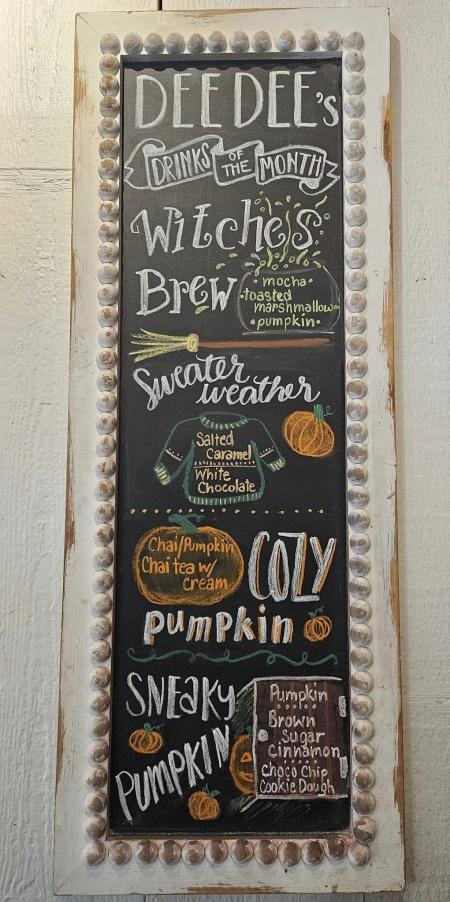 DEE DEE's
DRINKS OF THE MONTH
Witches
Brew
• mocha •
• toasted
marshmallow •
• pumpkin •
Sweater
weather
Salted
Caramel
White
Chocolate
Chai/Pumpkin
Chai tea w/
Cream
COZY
pumpkin
SNEAKY
PUMPKIN
Pumpkin
Brown
Sugar
Cinnamon
Choco Chip
Cookie Dough